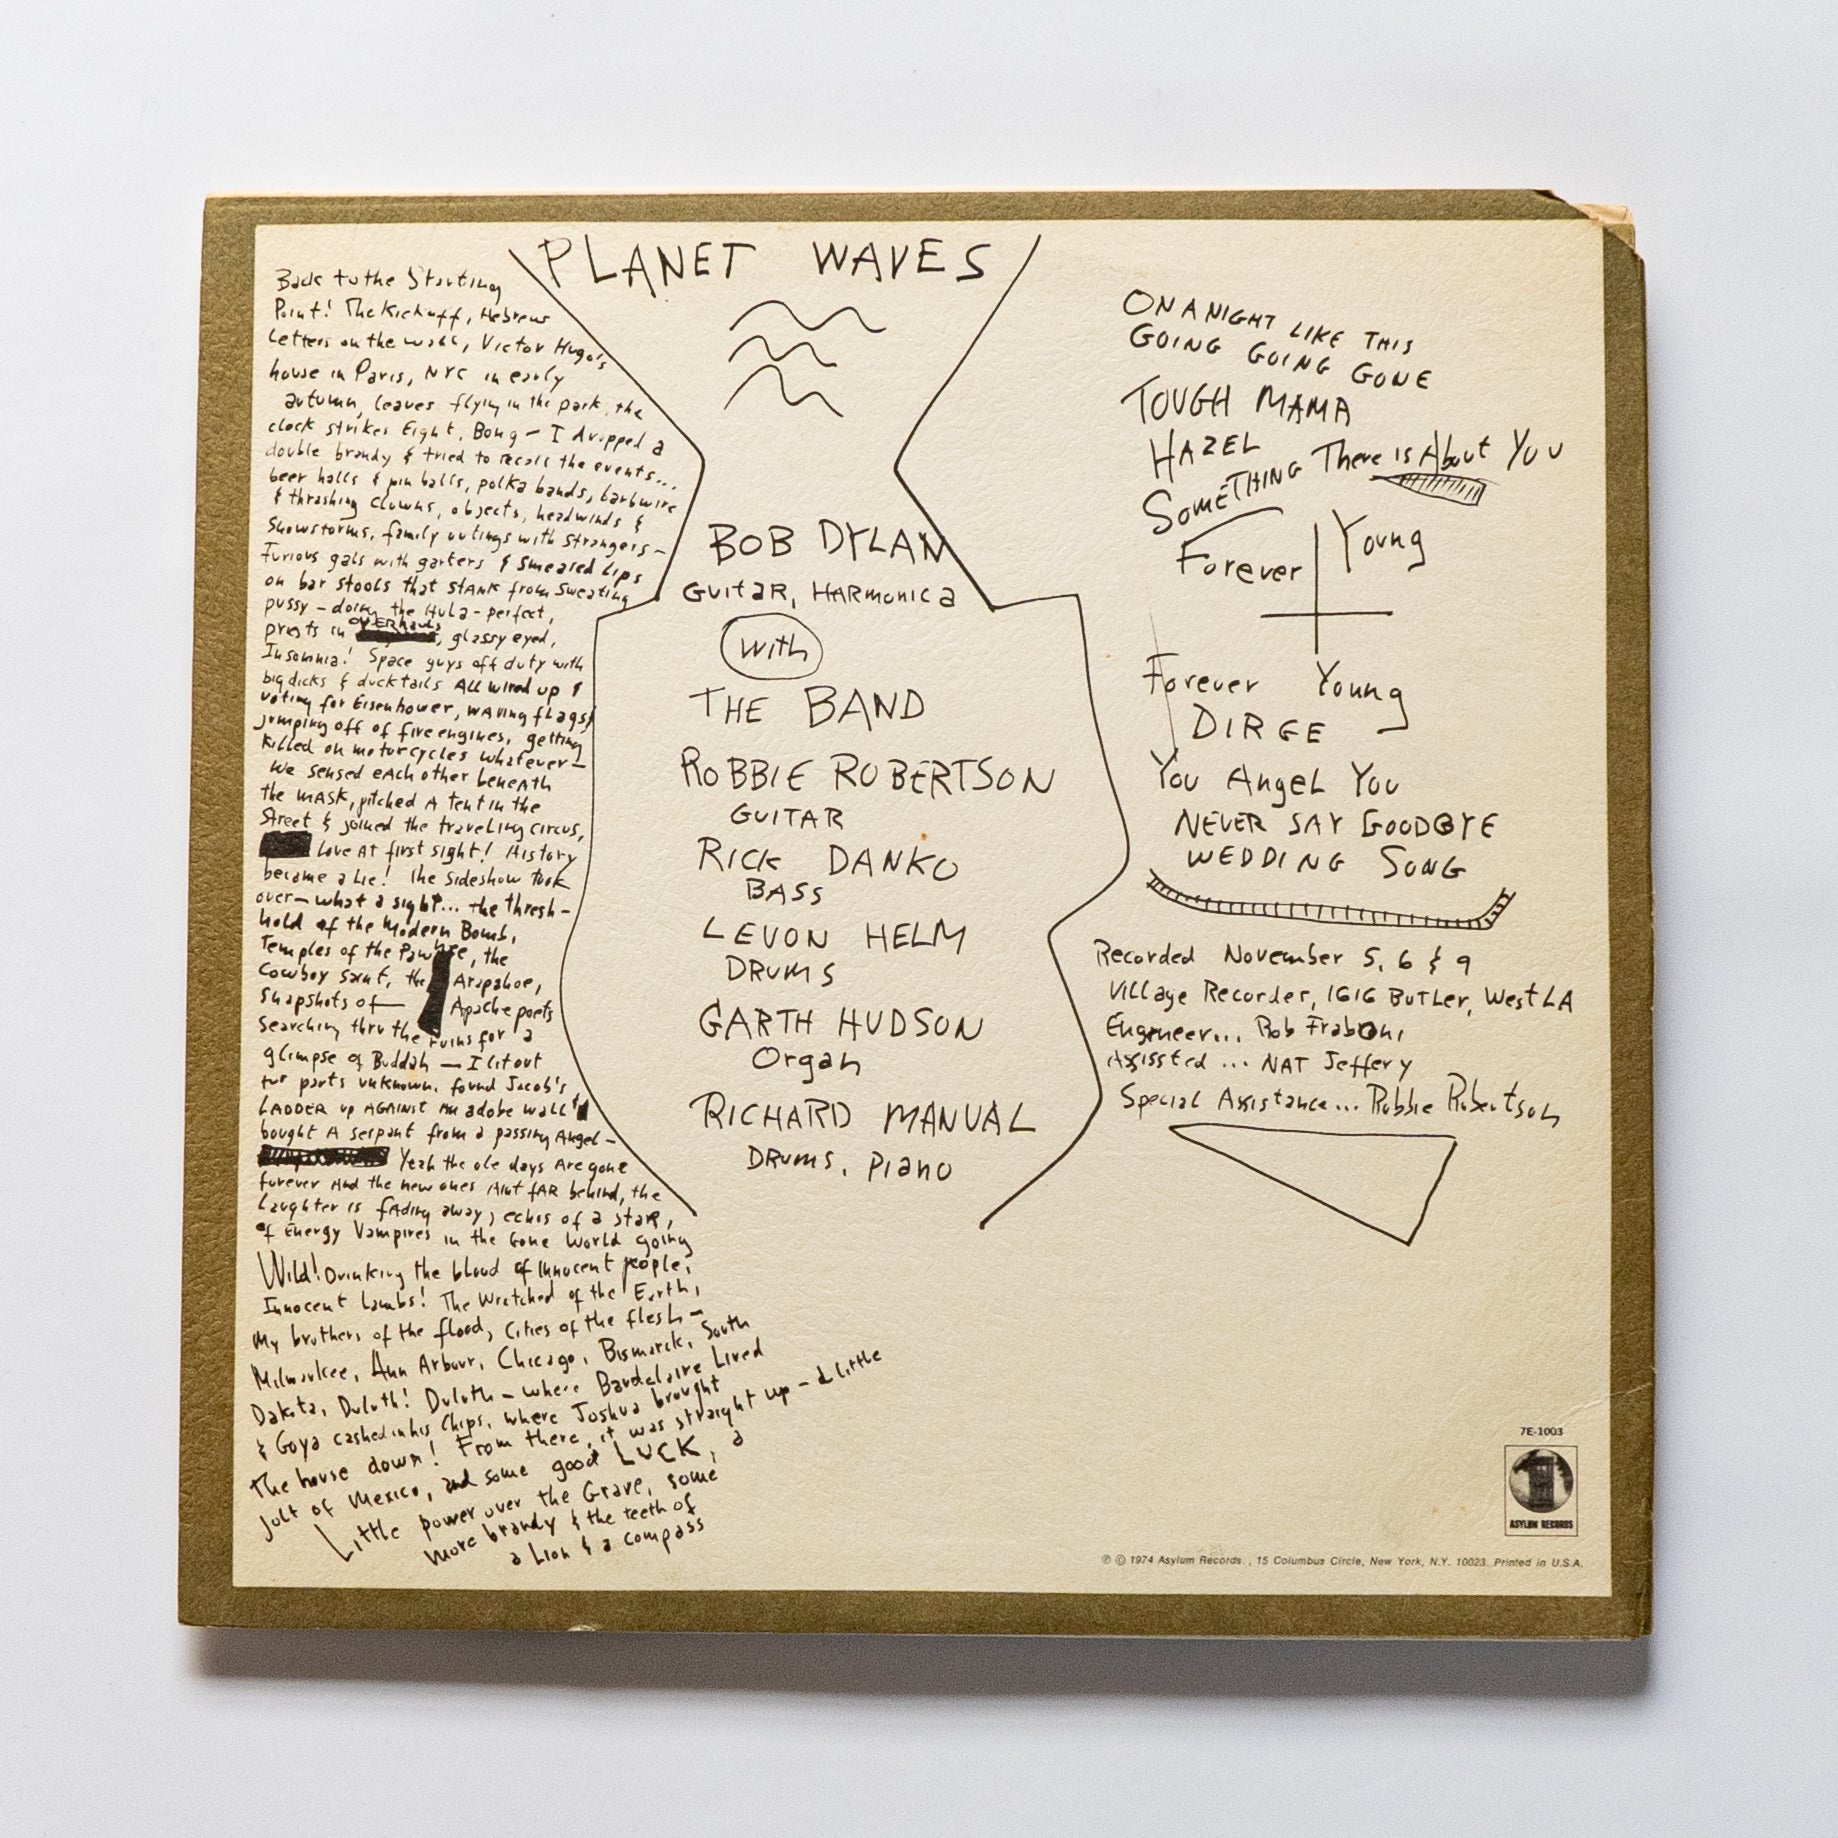 PLANET WAVES
Back to the Starting
Point! The Kickoff, Hebrew
Letters on the wall, Victor Hugo's
house in Paris, NYC in early
autumn, leaves flying in the park, the
clock strikes Eight, Bong — I dropped a
double brandy & tried to recall the events...
beer halls & pin balls, polka bands, barbwire
& thrashing clowns, objects, headwinds &
Snowstorms, family outings with strangers —
Furious gals with garters & smeared Lips
on bar stools that stank from sweating
pussy — doing the Hula — perfect,
priests in OVERhauls, glassy eyed,
Insomnia! Space guys off duty with
big dicks & ducktails All wired up &
voting for Eisenhower, waving flags &
jumping off of fire engines, getting
killed on motorcycles whatever —
We sensed each other beneath
the MASK, pitched A tent in the
Street & joined the traveling circus,
Love At first sight! History
became a Lie! The sideshow took
over — what a sight... the thresh-
hold of the Modern Bomb,
Temples of the Pawnee, the
Cowboy saint, the Arapahoe,
Snapshots of — Apache poets
Searching thru the ruins for a
glimpse of Buddah — I lit out
for parts unknown, found Jacob's
LADDER up AGAINST An adobe wall &
bought A serpant from a passing Angel —
Yeah the ole days Are gone
forever And the new ones Aint fAR behind, the
Laughter is fading away, echos of a staR,
of Energy Vampires in the Gone World going
Wild! Drinking the blood of Innocent people,
Innocent Lambs! The Wretched of the Earth,
My brothers of the flood, Cities of the flesh —
Milwaukee, Ann Arbour, Chicago, Bismarck, South
Dakota, Duluth! Duluth — where Baudelaire Lived
& Goya cashed in his Chips, where Joshua brought
The house down! From there, it was straight up — a little
jolt of Mexico, and some good LUCK, a
Little power over the Grave, some
more brandy & the teeth of
a Lion & a compass
BOB DYLAN
GUitar, HARmonica
with
THE BAND
ROBBIE ROBERTSON
GUITAR
RICK DANKO
BASS
LEVON HELM
DRUMS
GARTH HUDSON
Organ
RICHARD MANUAL
DRUMS, Piano
ON A NIGHT LIKE THIS
GOING GOING GONE
TOUGH MAMA
HAZEL
SOMETHING There is About You
Forever Young
Forever Young
DIRGE
You Angel You
NEVER SAY GOODBYE
WEDDING SONG
Recorded November 5, 6 & 9
Village Recorder, 1616 BUTLer, West LA
Engineer... Rob Fraboni
Assissted ... NAT Jeffery
Special Assistance... Robbie Robertson
7E-1003
ASYLUM RECORDS
℗ © 1974 Asylum Records., 15 Columbus Circle, New York, N.Y. 10023. Printed in U.S.A.